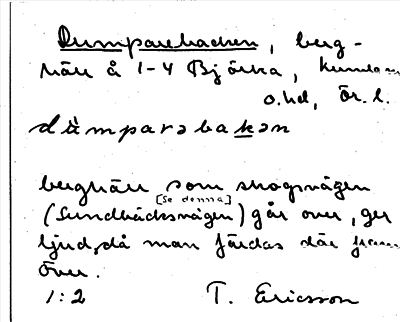 Dumparebacken, berg-
häll å 1-4 Björka, Kumla
o.hd, Ör. l.
dùmparəbakən
berghäll som skogsvägen
[Se denna]
(Sundbäcksvägen) går over, ger
ljud, då man färdas där fram
över.
1:2 T. Ericsson